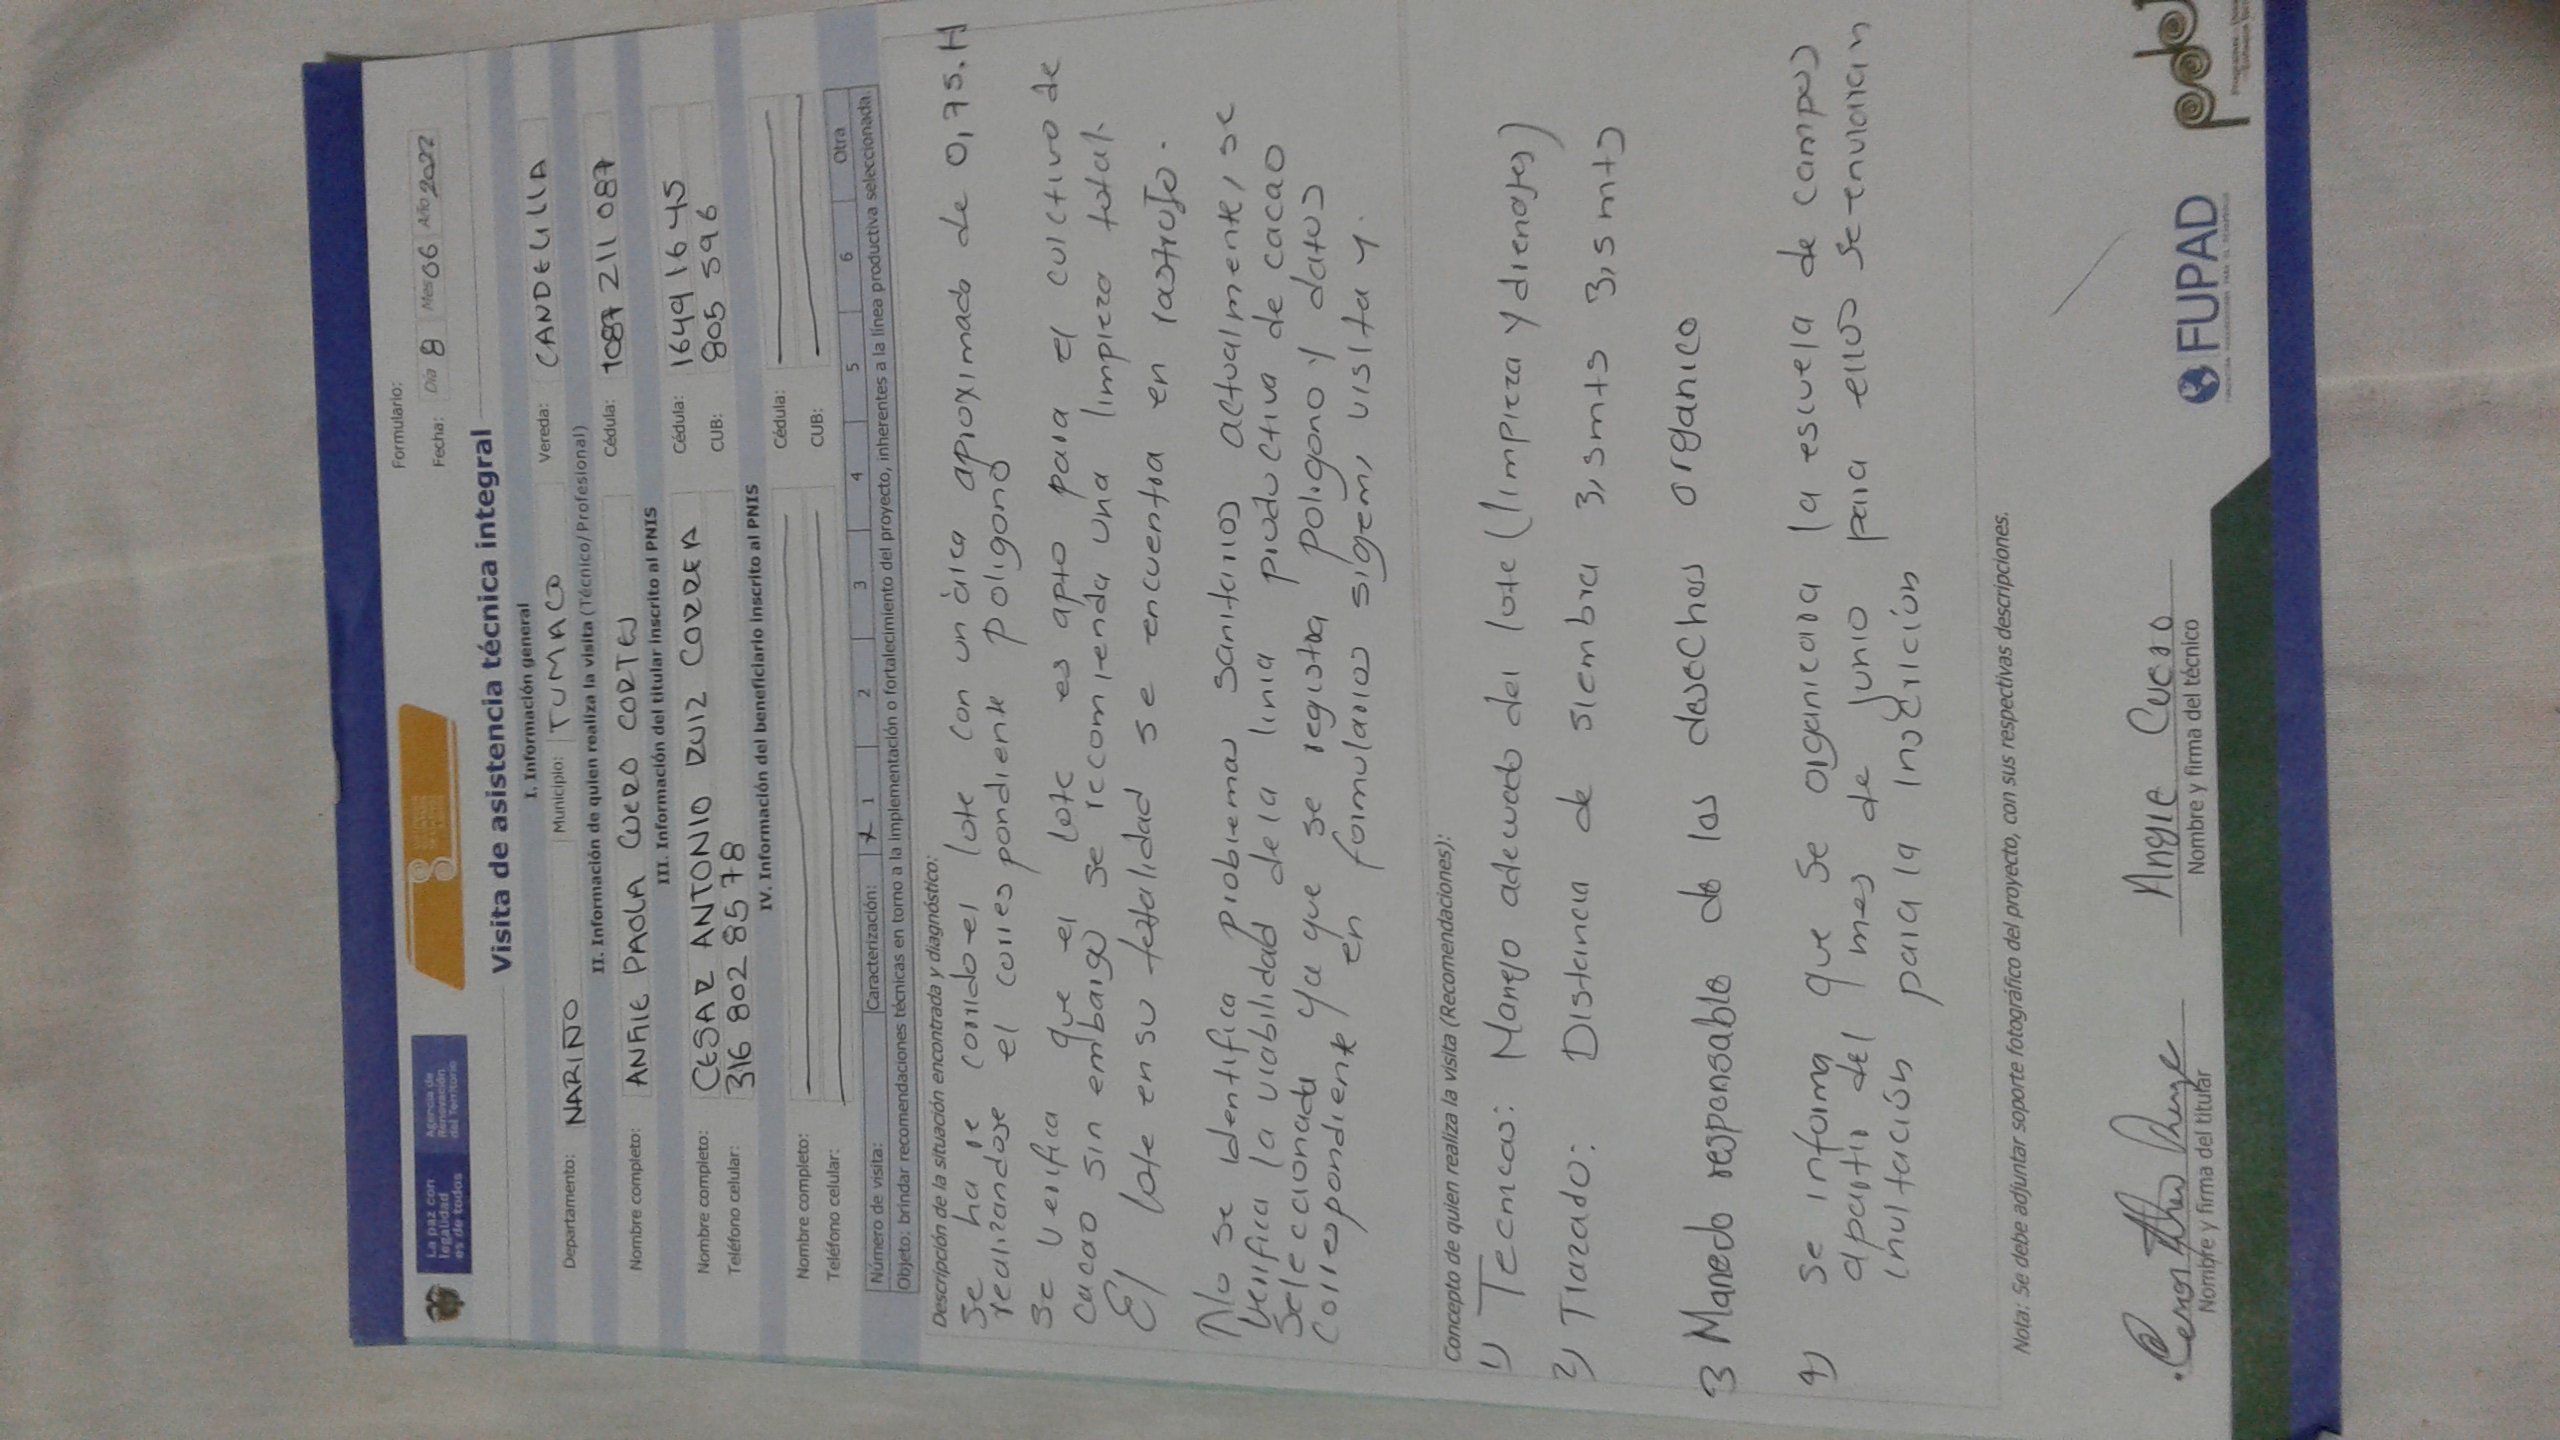 La paz con
legalidad
es de todos
Agencia de
Renovación
del Territorio
Formulario:
Fecha: Día 8 Mes 06 Año 2022
Visita de asistencia técnica integral
I. Información general
Departamento: NARIÑO Municipio: TUMACO Vereda: CANDELILLA
II. Información de quien realiza la visita (Técnico/Profesional)
Nombre completo: ANGIE PAOLA CUERO CORTES Cédula: 1087 211 087
III. Información del titular inscrito al PNIS
Nombre completo: CESAR ANTONIO RUIZ CORREA Cédula: 1649 16 45
Teléfono celular: 316 802 85 78 CUB: 805 596
IV. Información del beneficiario inscrito al PNIS
Nombre completo: Cédula:
Teléfono celular: CUB:
Número de visita: Caracterización: X 1 2 3 4 5 6 Otra
Objeto: brindar recomendaciones técnicas en torno a la implementación o fortalecimiento del proyecto, inherentes a la línea productiva seleccionada.
Descripción de la situación encontrada y diagnóstico:
Se ha re corrido el lote con un àrea aproximado de 0,75.H
realizandose el correspondiente poligono
Se verifica que el lote es apto para el cultivo de
cacao sin embargo se recomienda una limpieza total.
El lote en su totalidad se encuentra en rastrojo.
No se identifica problemas sanitarios actualmente, se
verifica la viabilidad de la linia productiva de cacao
Seleccionada ya que se registra poligono y datos
correspondiente en formularios sigem, visita y.
Concepto de quien realiza la visita (Recomendaciones):
1) Tecnicas: Manejo adecuado del lote (limpieza y drenajes)
2) Trazado: Distancia de siembra 3,5mts 3,5mts 3,5mts
3 Manejo responsable de los desechos organico
4) Se informa que se organizara la escuela de campos
apartir del mes de junio para ellos se enviaran
invitación para la inscrición
Nota: Se debe adjuntar soporte fotográfico del proyecto, con sus respectivas descripciones.
Nombre y firma del titular
Angie Cuero
Nombre y firma del técnico
FUPAD